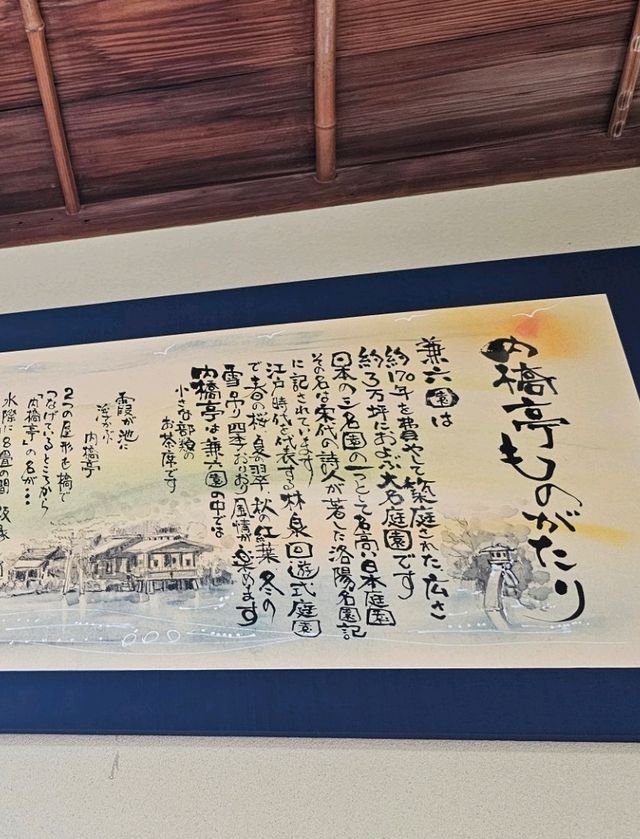 内橋亭ものがたり
兼六園は
約170年を費やして築庭された広さ
約3万坪におよぶ大名庭園です
日本の三名園の一つとして名高い日本庭園
その名は宋代の詩人が著した洛陽名園記
に記されています
江戸時代を代表する林泉回遊式庭園
で春の桜 夏の翠 秋の紅葉 冬の
雪吊り 四季おりおり風情が楽めます
内橋亭は兼六園の中では
小さな部類の
お茶席です
霞が池に
浮かぶ
内橋亭
2つの屋形を橋で
つなげているところから
「内橋亭」の名が…
水際に8畳の間